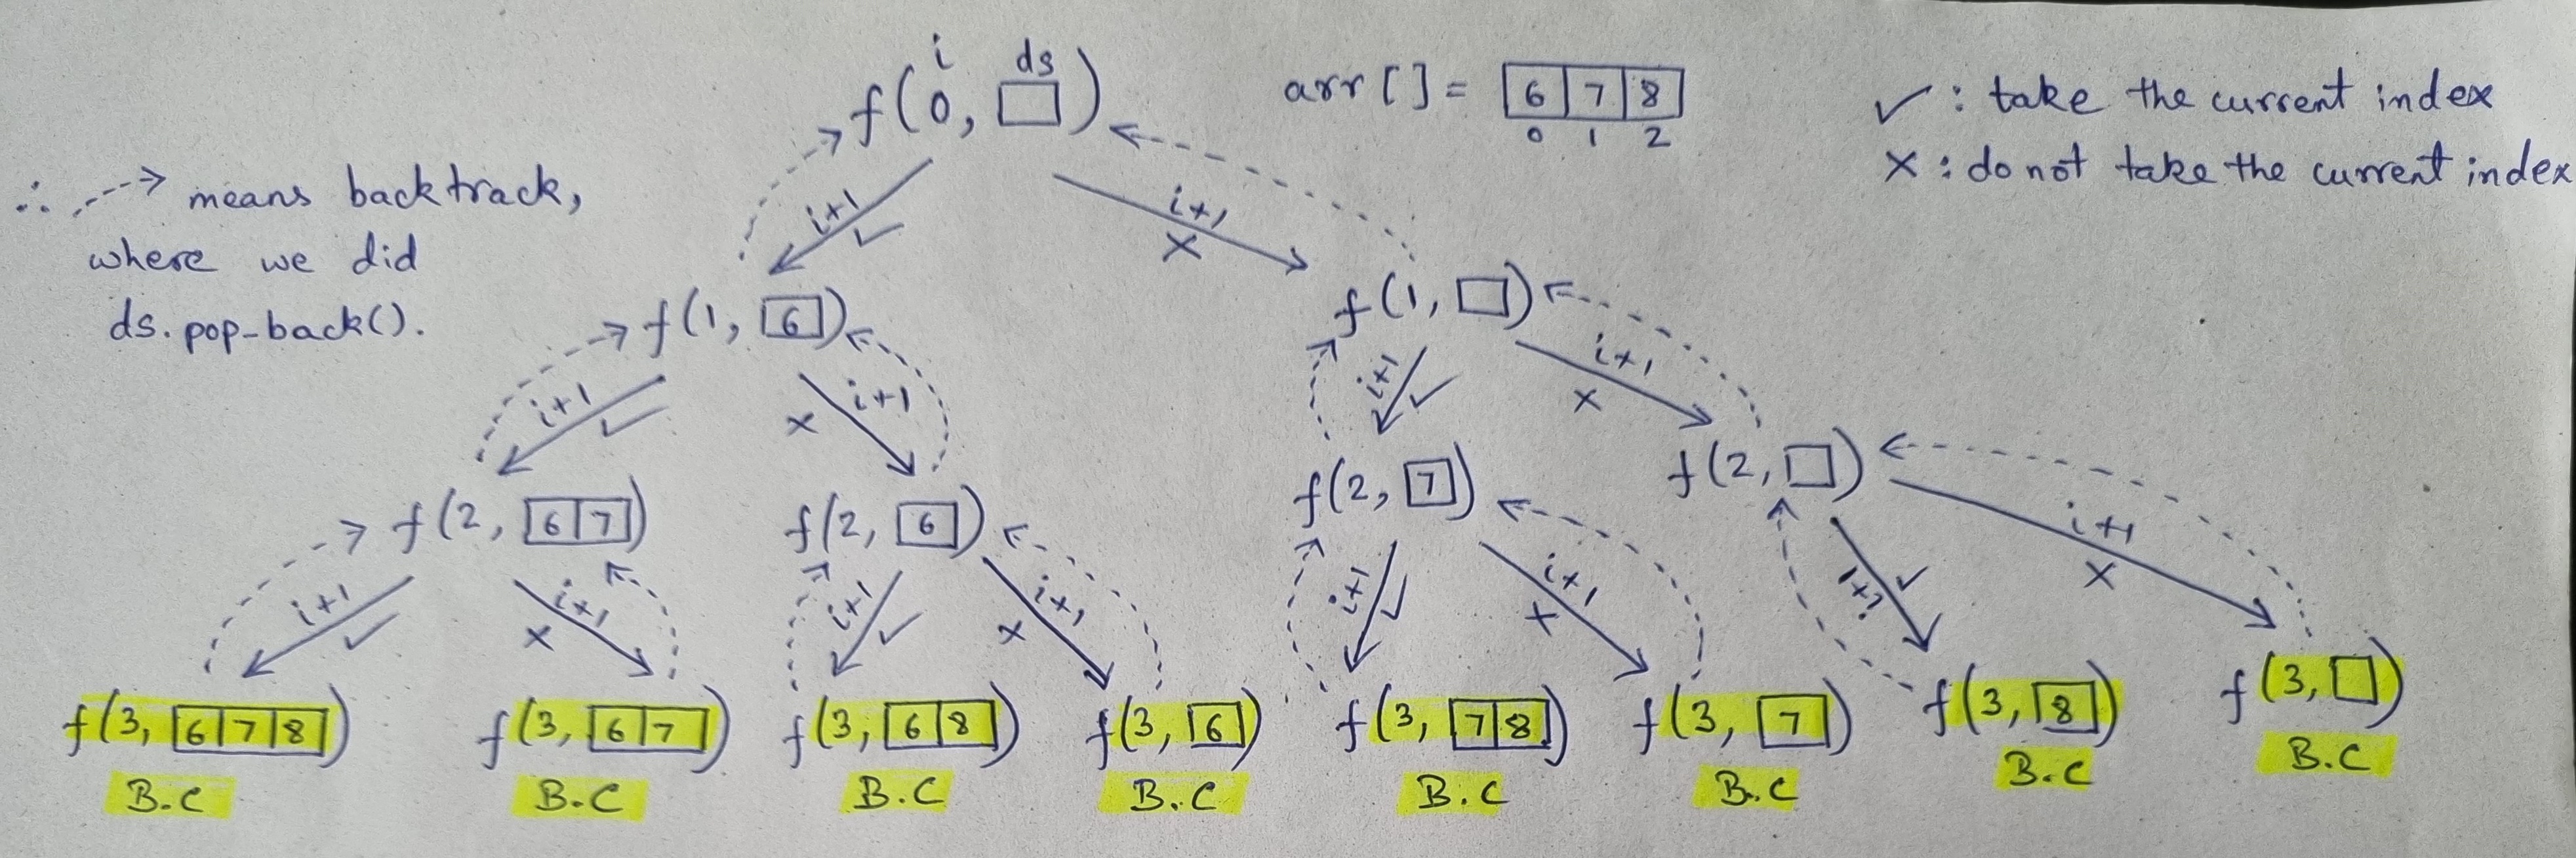 i ds
f(0, □)
arr[] = 6 7 8
0 1 2
✓ : take the current index
X : do not take the current index
∴ ---> means backtrack,
where we did
ds.pop_back().
i+1 ✓
i+1 X
f(1, 6)
f(1, □)
i+1 ✓
i+1 X
i+1 ✓
i+1 X
f(2, 6 7)
f(2, 6)
f(2, 7)
f(2, □)
i+1 ✓
i+1 X
i+1 ✓
i+1 X
i+1 ✓
i+1 X
i+1 ✓
i+1 X
f(3, 6 7 8)
f(3, 6 7)
f(3, 6 8)
f(3, 6)
f(3, 7 8)
f(3, 7)
f(3, 8)
f(3, □)
B.C
B.C
B.C
B.C
B.C
B.C
B.C
B.C